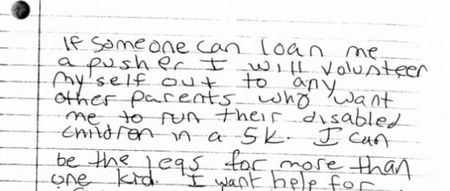 If someone can loan me
a pusher I will volunteer
myself out to any
other parents who want
me to run their disabled
children in a 5K. I can
be the legs for more than
one kid. I want help for